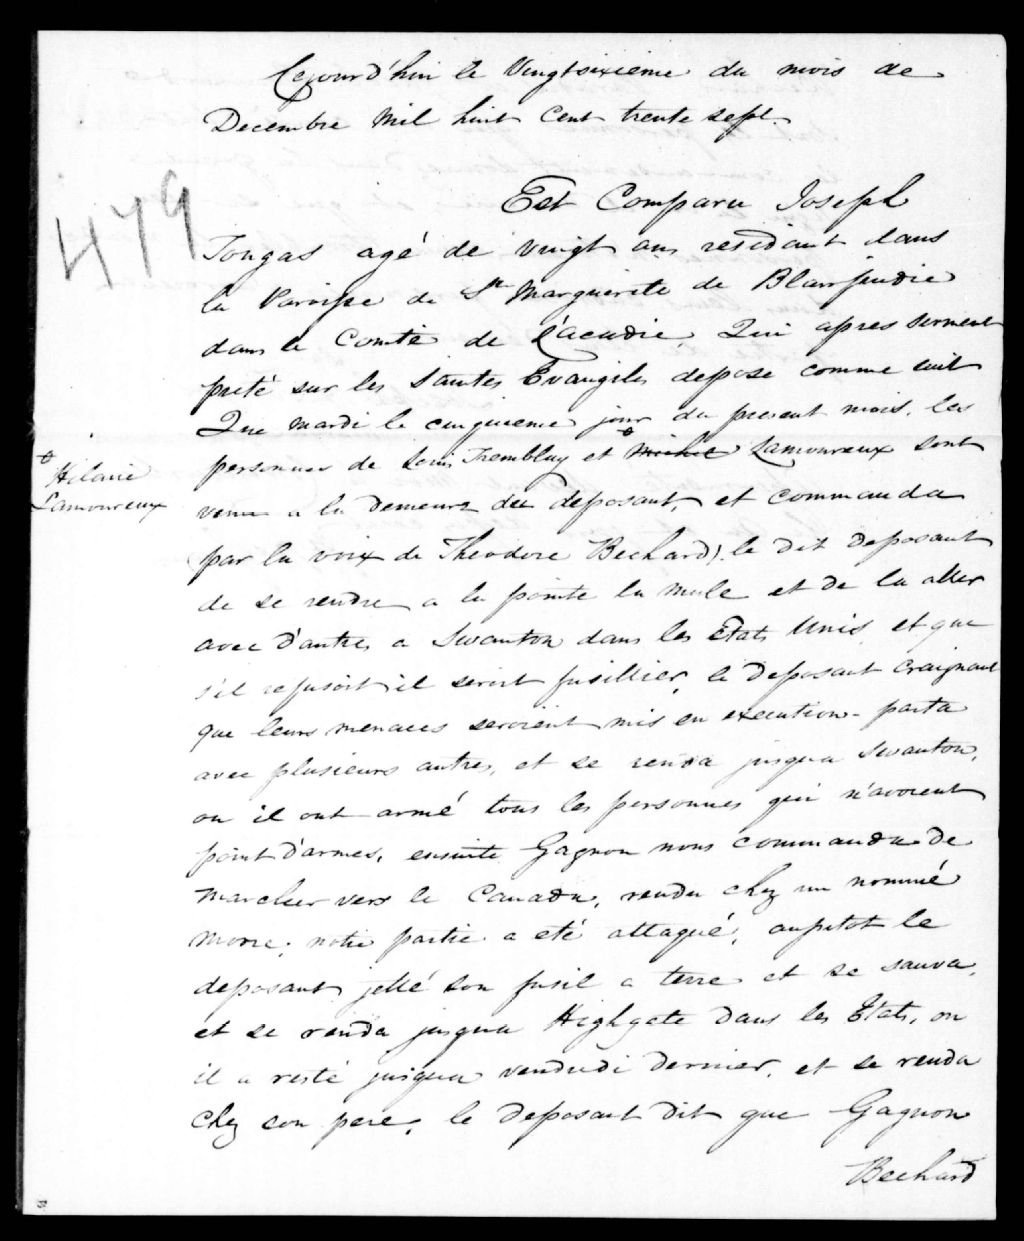 Cejourd'hui le Vingtsixieme du mois de
Decembre Mil huit Cent trente sept.
479
Est Comparu Joseph
Tougas agé de vingt ans residant dans
la Paroisse de Ste Marguerite de Blairfindie
dans le Comté de L'acadie, Qui apres serment
preté sur les Saintes Evangiles depose comme suit
Que mardi le cinquieme jour du present mois, les
personnes de Louis Tremblay et Michel Lamoureux sont
Hilaire
Lamoureux
venu a la demeure du deposant, et commanda
(par la voix de Theodore Bechard) le dit deposant
de se rendre a la pointe la mule et de la aller
avec d'autres a Swanton dans les Etats Unis, et que
s'il refusoit il seroit fusillier, le deposant craignant
que leurs menaces seroient mis en execution parta
avec plusieurs autres, et se renda jusqua Swanton,
ou il ont armé tous les personnes qui n'avoient
point d'armes, ensuite Gagnon nous commanda de
marcher vers le Canada, rendu chez un nommé
Morse, notre partie a eté attaqué, aussitot le
deposant jetté son fusil a terre et se sauva,
et se renda jusqua Highgate dans les Etats, ou
il a resté jusqua vendredi dernier, et se renda
chez son pere, le deposant dit que Gagnon
Bechard